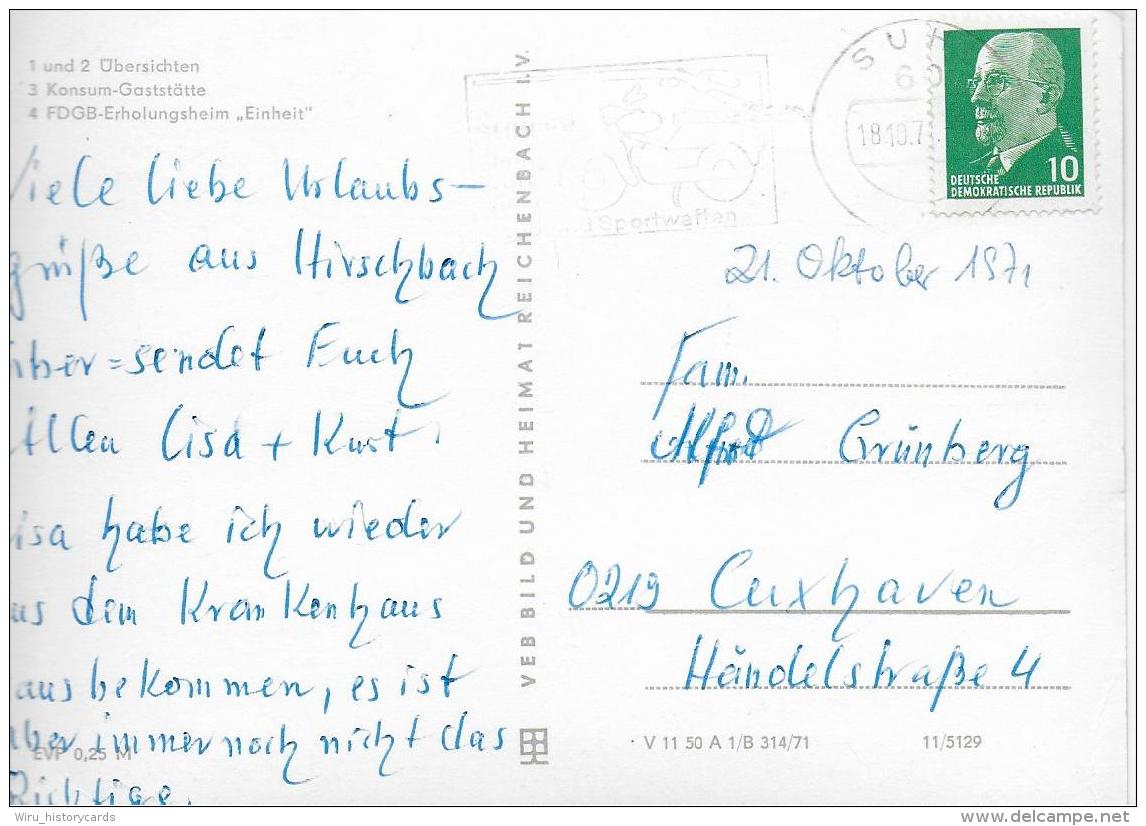 1 und 2 Übersichten
3 Konsum-Gaststätte
4 FDGB-Erholungsheim „Einheit"
Viele liebe Urlaubs-
grüße aus Hirschbach
über=sendet Euch
Allen Lisa + Kurt.
Lisa habe ich wieder
aus dem Krankenhaus
rausbekommen, es ist
aber immer noch nicht das
Richtige.
EVP 0,25 M
VEB BILD UND HEIMAT REICHENBACH I.V.
Sportwaffen
SUH
60
18.10.7
DEUTSCHE
DEMOKRATISCHE REPUBLIK
10
21. Oktober 1971
Fam.
Alfred Grünberg
0219 Cuxhaven
Händelstraße 4
V 11 50 A 1/B 314/71 11/5129
Wiru_historycards
www.delcampe.net